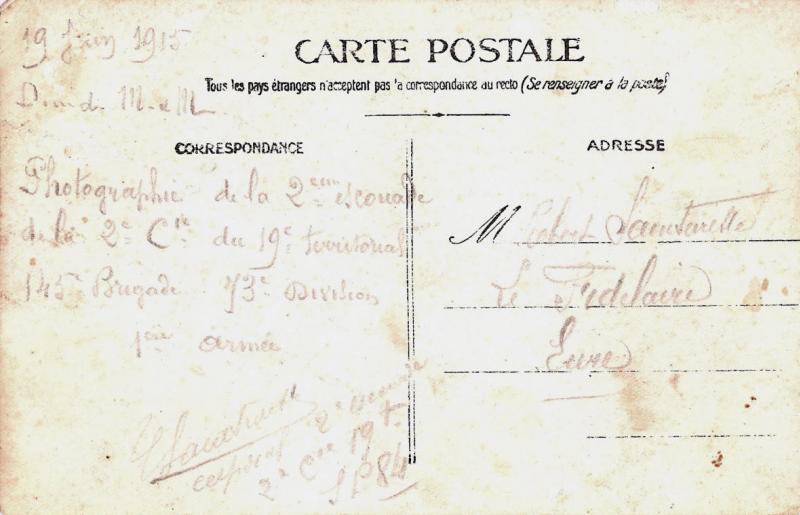 19 Juin 1915
CARTE POSTALE
Tous les pays étrangers n'acceptent pas la correspondance au recto (Se renseigner à la poste)
M. et M.
CORRESPONDANCE
Photographie de la 2eme escouade
de la 2e Cie du 19e territorial
145e Brigade 73e Division
1ère armée
caporal 2e escouade
2e Cie 19e T.
S P 84
ADRESSE
M
Le Fidelaire
Eure